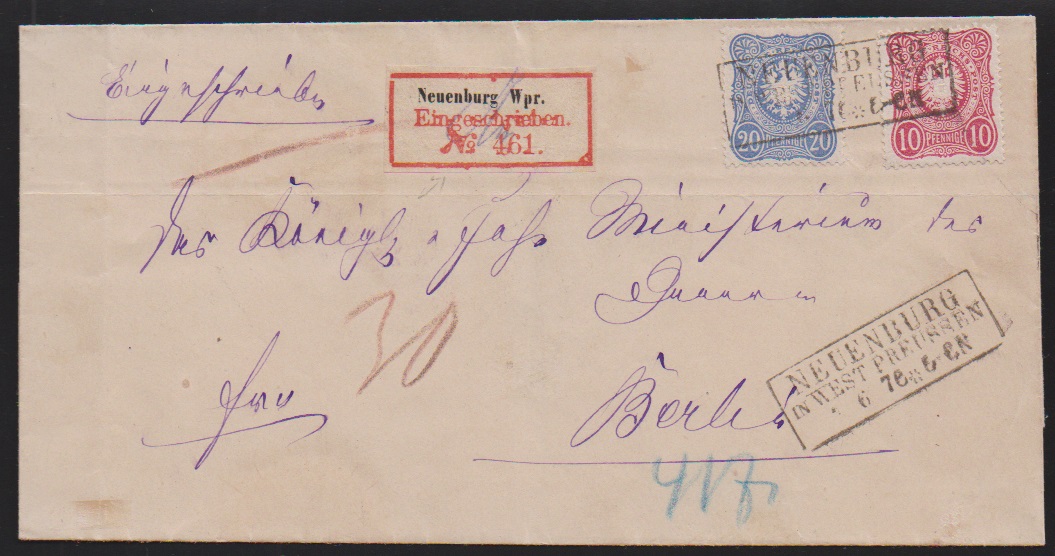 Eingeschrieben
Neuenburg Wpr.
Eingeschrieben.
№ 461.
NEUENBURG
20 PFENNIGE 20
10 PFENNIGE 10
Das Königl. Ministerium des
Innern
30
frei
Berlin
NEUENBURG
IN WEST PREUSSEN
6 78